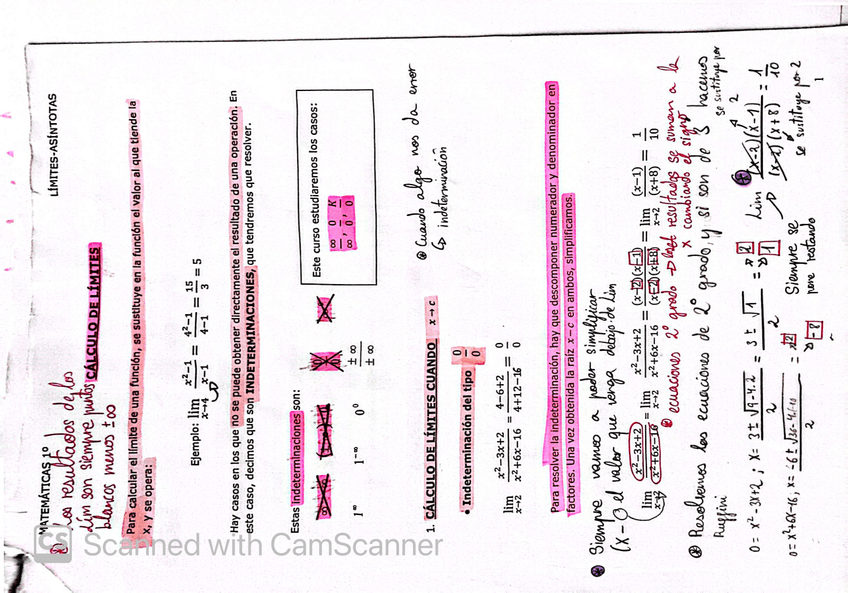 MATEMÁTICAS 1º
LÍMITES-ASÍNTOTAS
Los resultados de los
lim son siempre puntos
blancos menos ±∞
CÁLCULO DE LÍMITES
Para calcular el límite de una función, se sustituye en la función el valor al que tiende la
x, y se opera:
Ejemplo: lim x→4 (x²−1)/(x−1) = (4²−1)/(4−1) = 15/3 = 5
Hay casos en los que no se puede obtener directamente el resultado de una operación. En
este caso, decimos que son INDETERMINACIONES, que tendremos que resolver.
Estas indeterminaciones son:
1^∞ 1^−∞ 0⁰ ±∞/±∞
Este curso estudiaremos los casos:
∞/∞, 0/0, K/0
Cuando algo nos da error
↳ indeterminación
1. CÁLCULO DE LÍMITES CUANDO x→c
• Indeterminación del tipo 0/0
lim x→2 (x²−3x+2)/(x²+6x−16) = (4−6+2)/(4+12−16) = 0/0
Para resolver la indeterminación, hay que descomponer numerador y denominador en
factores. Una vez obtenida la raíz x−c en ambos, simplificamos.
Siempre vamos a poder simplificar
(x − el valor que venga debajo de lim
lim x→2 (x²−3x+2)/(x²+6x−16) = lim x→2 (x²−3x+2)/(x²+6x−16) = lim x→2 (x−2)(x−1)/(x−2)(x+8) = lim x→2 (x−1)/(x+8) = 1/10
ecuaciones 2º grado → resultados se suman a la
x cambiando el signo
Resolvemos las ecuaciones de 2º grado, y si son de 3 hacemos
Ruffini
0 = x²−3x+2; x = (3 ± √(9−4·2))/2 = (3 ± √1)/2 = 2 1
0 = x²+6x−16, x = (−6 ± √(36−4·(−16)))/2 = 2 −8
Siempre se
pone restando
lim (x−2)(x−1)/(x−2)(x+8) = 1/10
se sustituye por
2
se sustituye por 2
CS Scanned with CamScanner